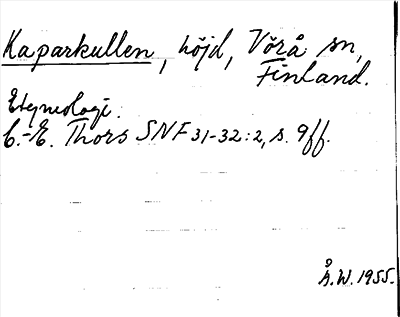 Kaparkullen, höjd, Vörå sn,
Finland.
Etymologi.
C.-E. Thors SNF 31-32:2, s. 9ff.
Å.W. 1955.